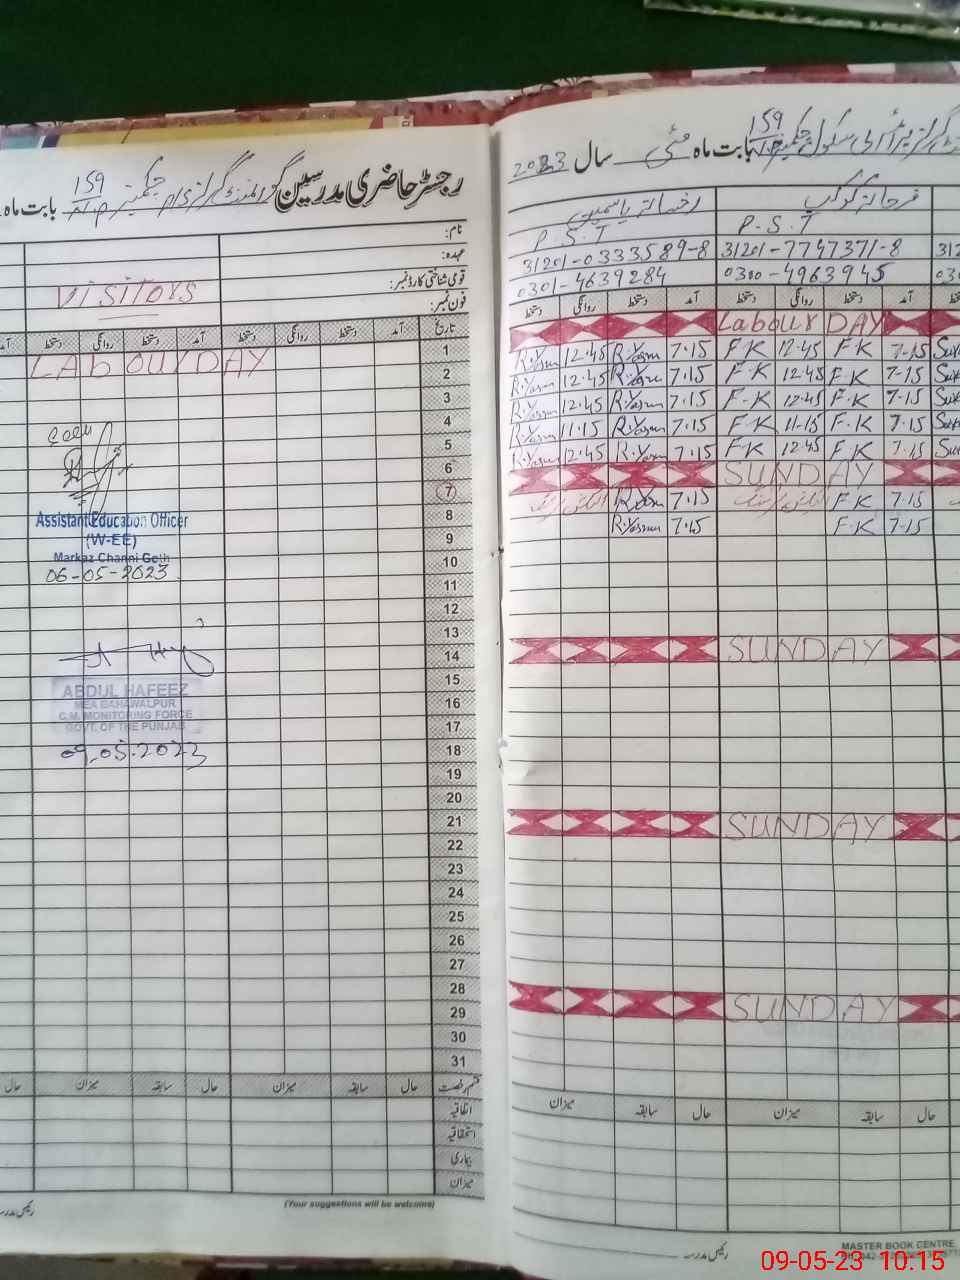 رجسٹر حاضری مدرسین گورنمنٹ گرلز
159
بابت ماہ
نام:
عہدہ:
قومی شناختی کارڈ نمبر:
فون نمبر:
VISITORS
تاریخ آمد دستخط روانگی دستخط آمد دستخط روانگی دستخط
1
LAbOUR DAY
2
3
4
5
6
7
8
9
10
11
12
13
14
15
16
17
18
19
20
21
22
23
24
25
26
27
28
29
30
31
Seen
Assistant Education Officer
(W-EE)
Markaz Channi Goth
06-05-2023
ABDUL HAFEEZ
MEA BAHAWALPUR
C.M. MONITORING FORCE
GOVT. OF THE PUNJAB
09.05.2023
قسم رخصت حال سابقہ میزان حال سابقہ میزان حال
اتفاقیہ
استحقاقیہ
بیماری
میزان
(Your suggestions will be welcome)
رئیس مدرسہ
گرلز پرائمری سکول
159
بابت ماہ مئی سال 2023
فرحانہ کوکب رخسانہ یاسمین
P.S.T P.S.T
31201-0333589-8 31201-7747371-8
0301-4639284 0300-4963945
آمد دستخط روانگی دستخط آمد دستخط روانگی دستخط
Labour DAY
R.Yasm 12.45 R.Yasm 7.15 F-K 12.45 F-K 7-15
R.Yasm 12.45 R.Yasm 7.15 F-K 12.45 F-K 7-15
R.Yasm 12.45 R.Yasm 7.15 F-K 12.45 F-K 7-15
R.Yasm 11.15 R.Yasm 7.15 F-K 11.15 F-K 7-15
R.Yasm 12.45 R.Yasm 7.15 F-K 12.45 F-K 7.15
SUNDAY
7.15 F-K 7-15
7.15 F-K 7-15
SUNDAY
SUNDAY
SUNDAY
حال سابقہ میزان حال سابقہ میزان
رئیس مدرسہ
MASTER BOOK CENTRE
09-05-23 10.15